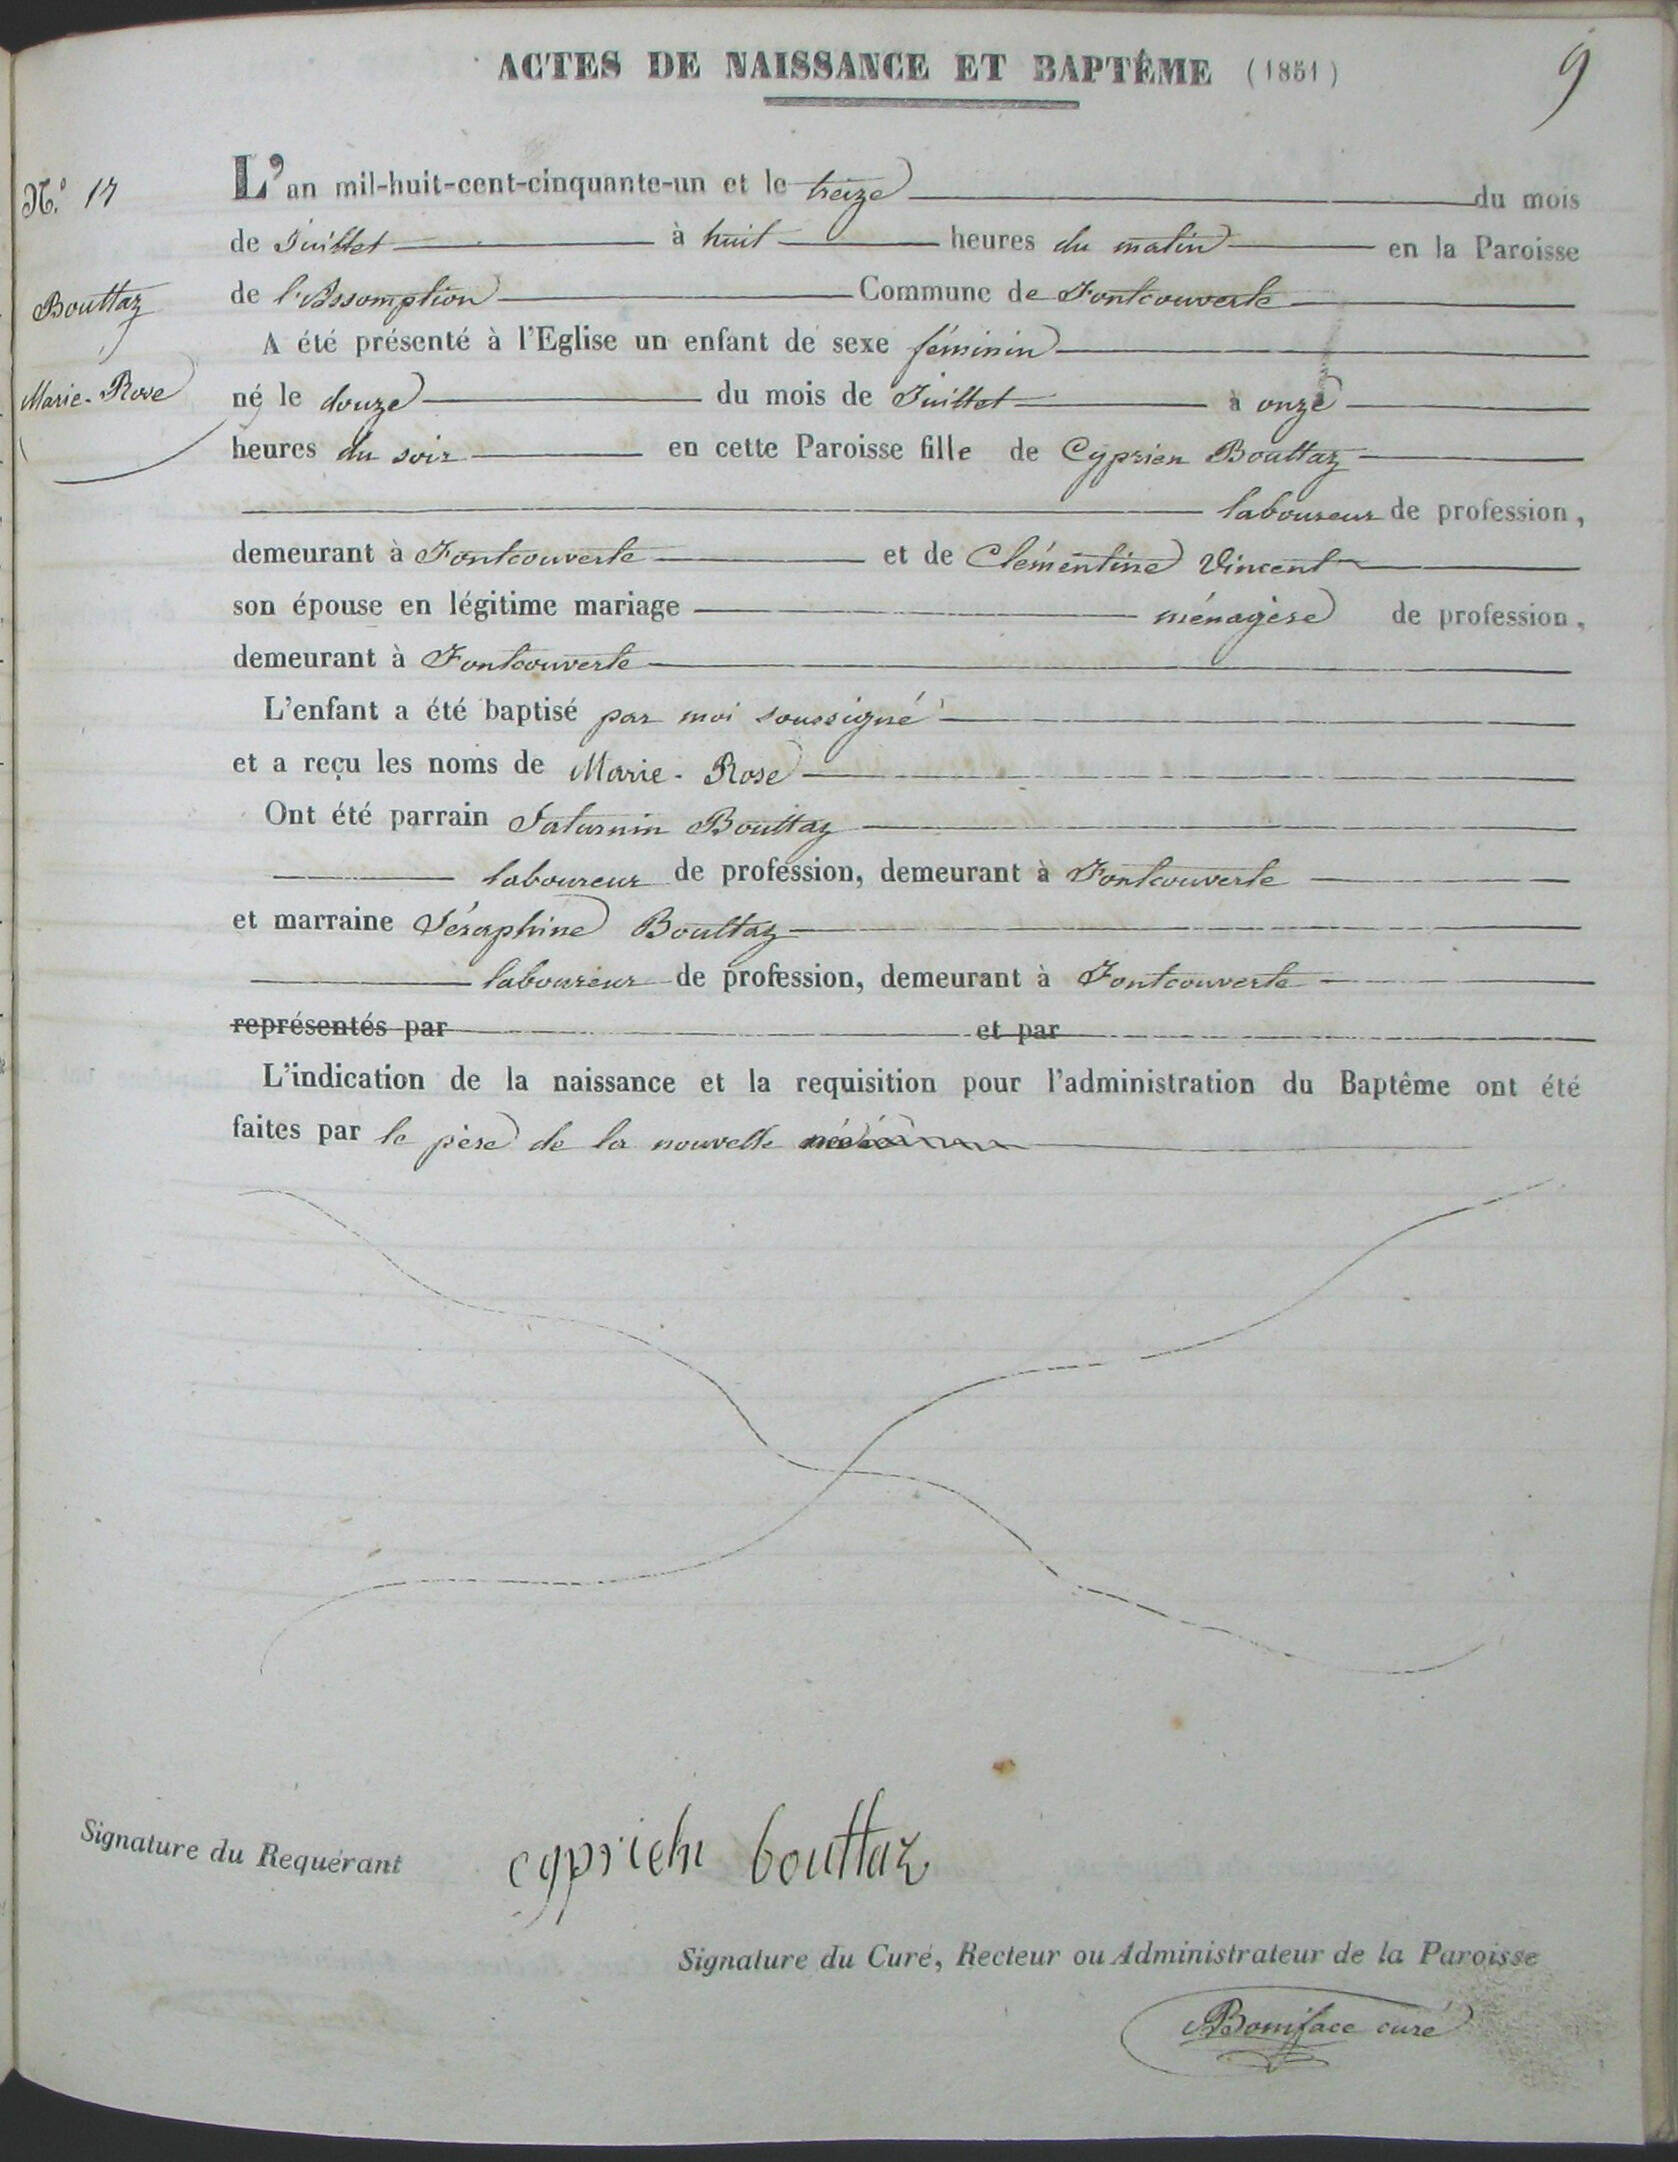 ACTES DE NAISSANCE ET BAPTÊME (1851)
9
N.° 17
Bouttaz
Marie-Rose
L'an mil-huit-cent-cinquante-un et le treize du mois
de Juillet à huit heures du matin en la Paroisse
de l'Assomption Commune de Fontcouverte
A été présenté à l'Eglise un enfant de sexe féminin
né le douze du mois de Juillet à onze
heures du soir en cette Paroisse fille de Cyprien Bouttaz
laboureur de profession,
demeurant à Fontcouverte et de Clémentine Vincent
son épouse en légitime mariage ménagère de profession,
demeurant à Fontcouverte
L'enfant a été baptisé par moi soussigné
et a reçu les noms de Marie-Rose
Ont été parrain Saturnin Bouttaz
laboureur de profession, demeurant à Fontcouverte
et marraine Séraphine Bouttaz
laboureur de profession, demeurant à Fontcouverte
représentés par et par
L'indication de la naissance et la requisition pour l'administration du Baptême ont été
faites par le père de la nouvelle née
Signature du Requérant cyprien bouttaz
Signature du Curé, Recteur ou Administrateur de la Paroisse
Boniface curé